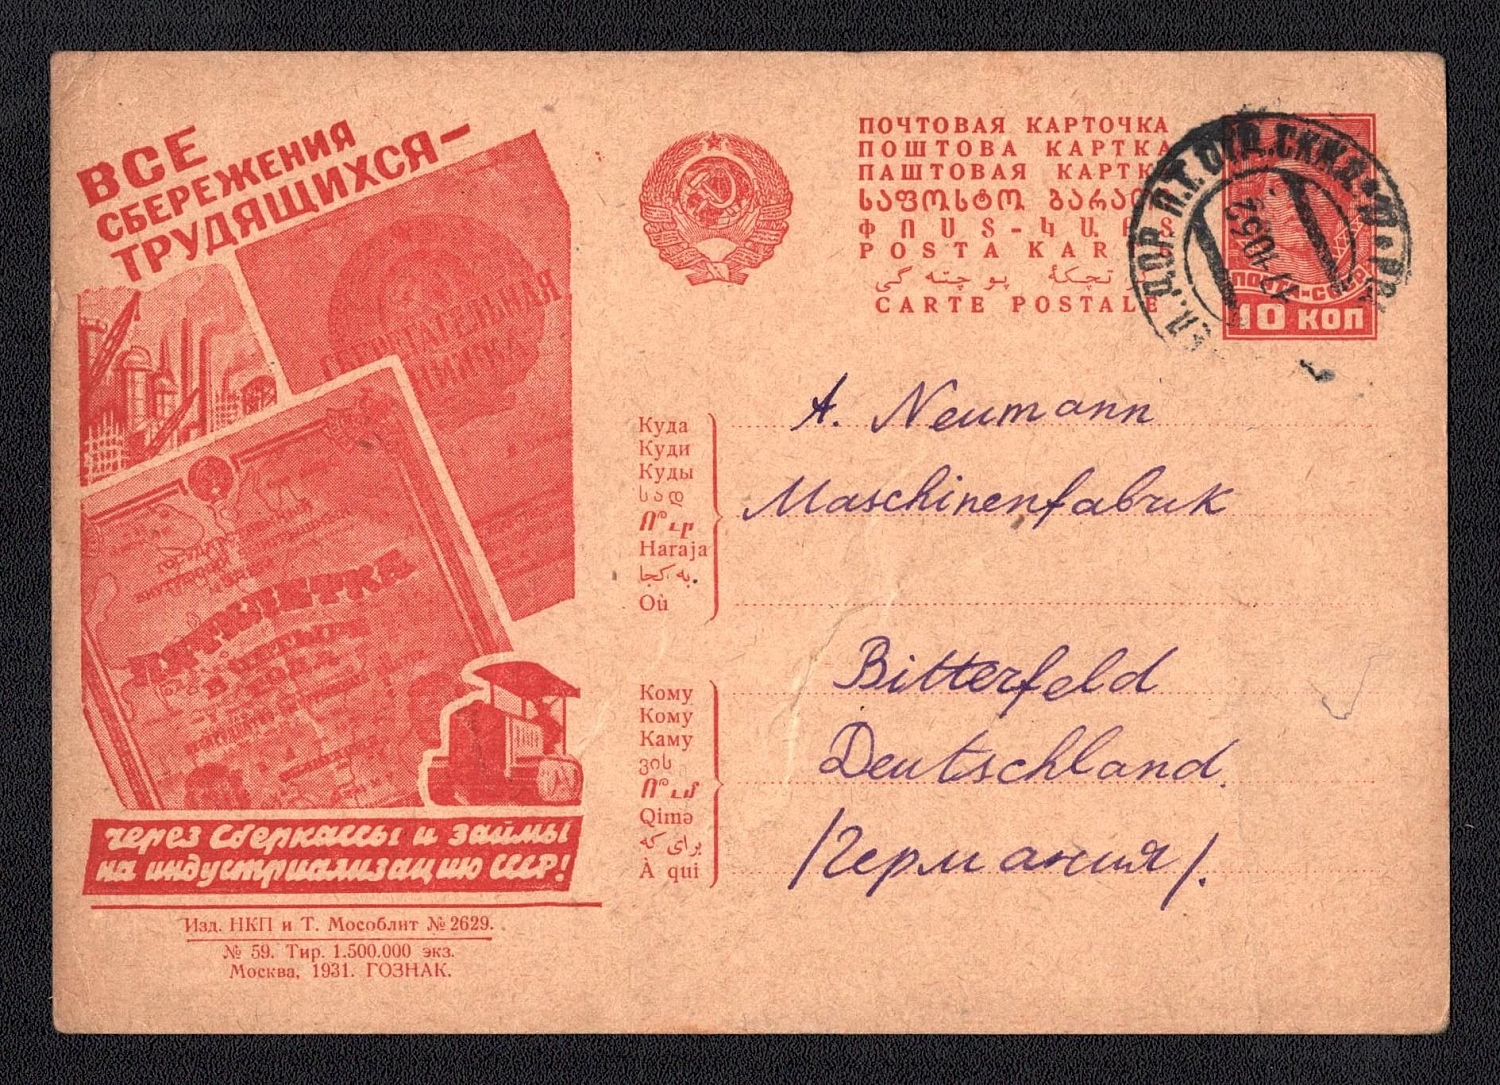 ВСЕ
СБЕРЕЖЕНИЯ
ТРУДЯЩИХСЯ-
СБЕРЕГАТЕЛЬНАЯ
КНИЖКА
ГОСУДАРСТВЕННЫЙ
ПЯТИЛЕТКА
В ЧЕТЫРЕ
ГОДА
через Сберкассы и займы
на индустриализацию СССР!
Изд. НКП и Т. Мособлит № 2629.
№ 59. Тир. 1.500.000 экз.
Москва, 1931. ГОЗНАК.
ПОЧТОВАЯ КАРТОЧКА
ПОШТОВА КАРТКА
ПАШТОВАЯ КАРТК
ՓՈՍՏ-ԿԱՐՏ
POSTA KAR
CARTE POSTALE
ПОЧТА-СССР
10 КОП
Куда
Куди
Куды
სად
Ո՞ւր
Haraja
به کجا
Où
A. Neumann
Maschinenfabrik
Кому
Кому
Каму
ვის
Ո՞ւմ
Qimə
برای که
À qui
Bitterfeld
Deutschland.
/Германия/.